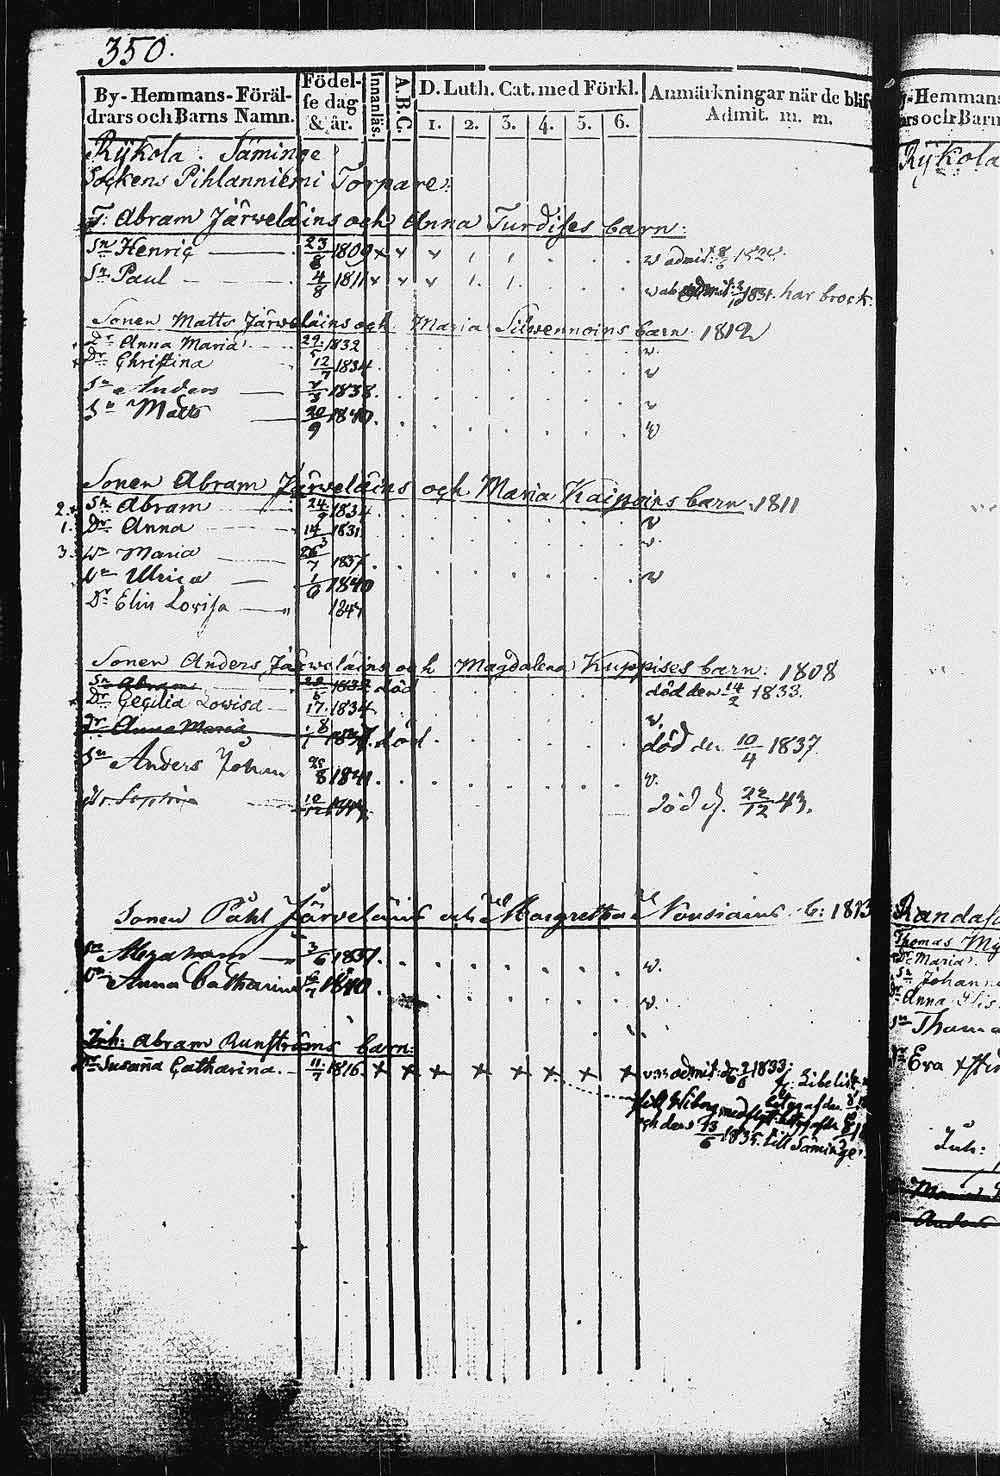 350.
By-Hemmans-Föräl-
drars och Barns Namn.
Födel-
se dag
& år.
Innanläs.
A.B.C.
D. Luth. Cat. med Förkl.
1. 2. 3. 4. 5. 6.
Anmärkningar när de blif
Admit. m. m.
Rijkola. Säminge
Sockens Pihlanniemi Torpare.
T: Abram Järveläins och Anna Turdises barn:
Sn Henric 23/8 1809 x v v v admit: 1828.
Sn Paul 4/8 1811 v v v admit: 1831. har brock
Sonen Matts Järveläins och Maria Silvennoins barn 1812
Dr Anna Maria 29/5 1832 v
Dr Christina 12/7 1834 v
Sn Anders 1838. v
Sn Matts 20/9 1840. v
Sonen Abram Järveläins och Maria Kaipains barn. 1811
2. Sn Abram 24/9 1834 v
1. Dr Anna 14/3 1831 v
3. Maria 26/7 1837.
Ulrica 1/6 1840 v
Dr Elin Lovisa 1844
Sonen Anders Järveläins och Magdalena Kuppises barn. 1808
Sn Abram 1832 död död den 14/2 1833.
Dr Cecilia Lovisa 17/8 1834 v.
Dr Anna Maria 1837. död död den 10/4 1837
Sn Anders Johan 25/8 1841. v.
Dr Sophia död d. 22/12 43.
Sonen Påhl Järveläins och Margretha Nousiains b: 1813
Sn Abraham 3/6 1837. v.
Anna Catharina 1840. v.
Inh: Abram Runströms barn:
Dr Susaña Catharina. 11/7 1816 x x x x x x x x admit: 1833;
till Wiborg med
och den 13/6 1835. till Säminge.
y-Hemmans
ars och Barn
Rijkola
Randa
Thomas
Dr Maria
Sn Johan
Dr Anna
Sn Thom
Dr Eva
Inh:
Maria
Anders